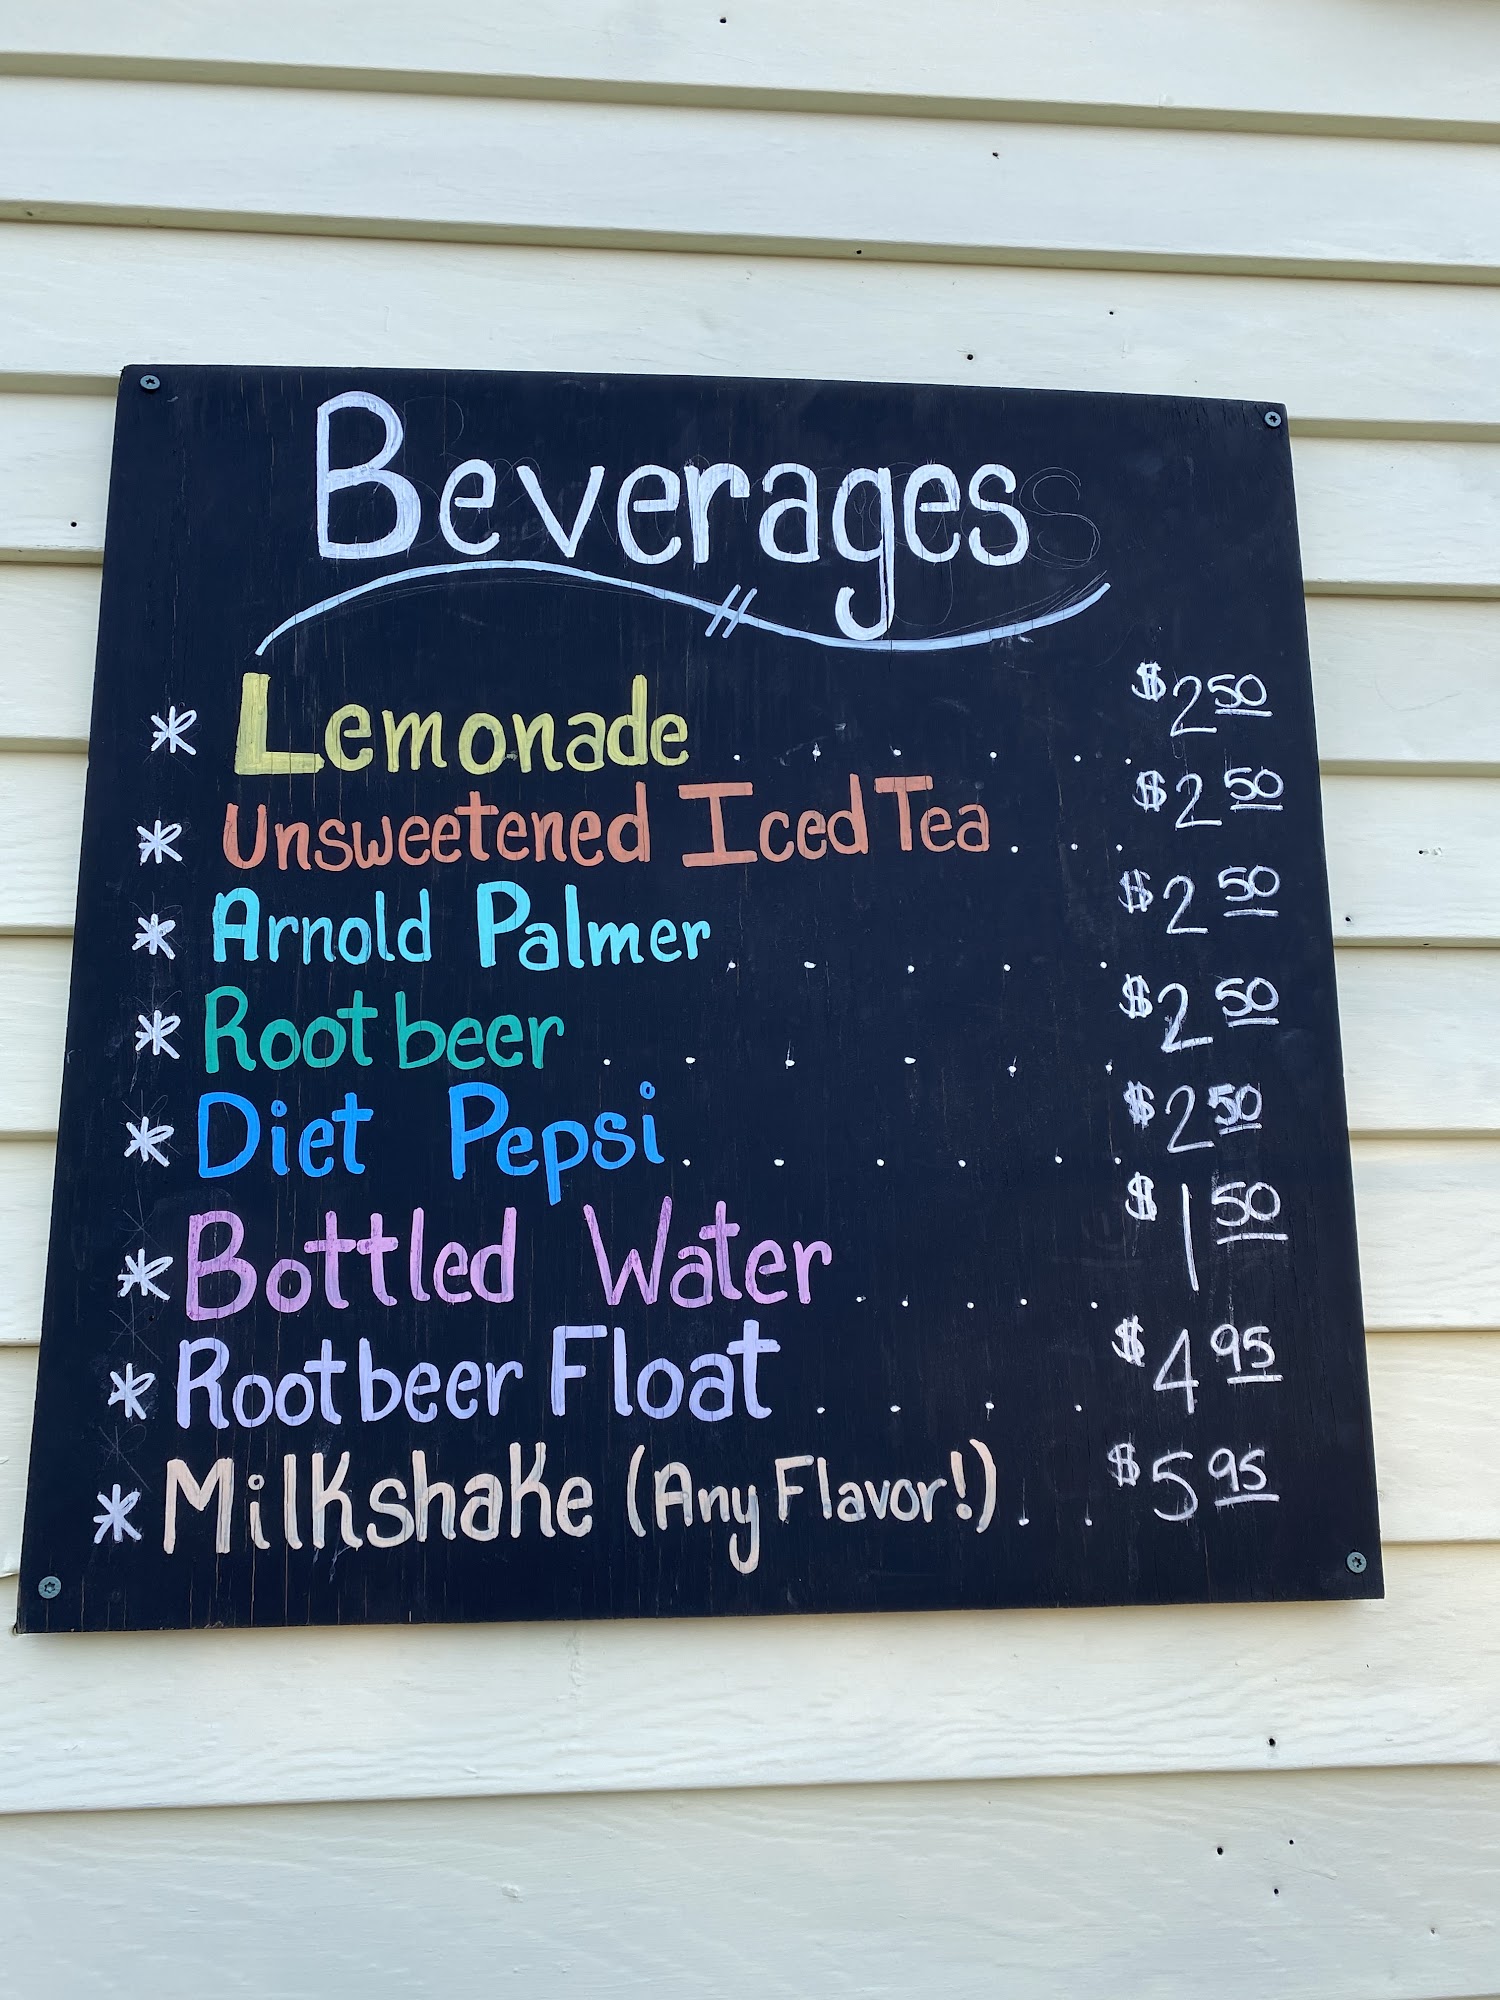 Beverages
* Lemonade . . . . . . $2.50
* Unsweetened Iced Tea . . . $2.50
* Arnold Palmer . . . . . $2.50
* Rootbeer . . . . . . $2.50
* Diet Pepsi . . . . . . $2.50
* Bottled Water . . . . . $1.50
* Rootbeer Float . . . . $4.95
* Milkshake (Any Flavor!) . . $5.95